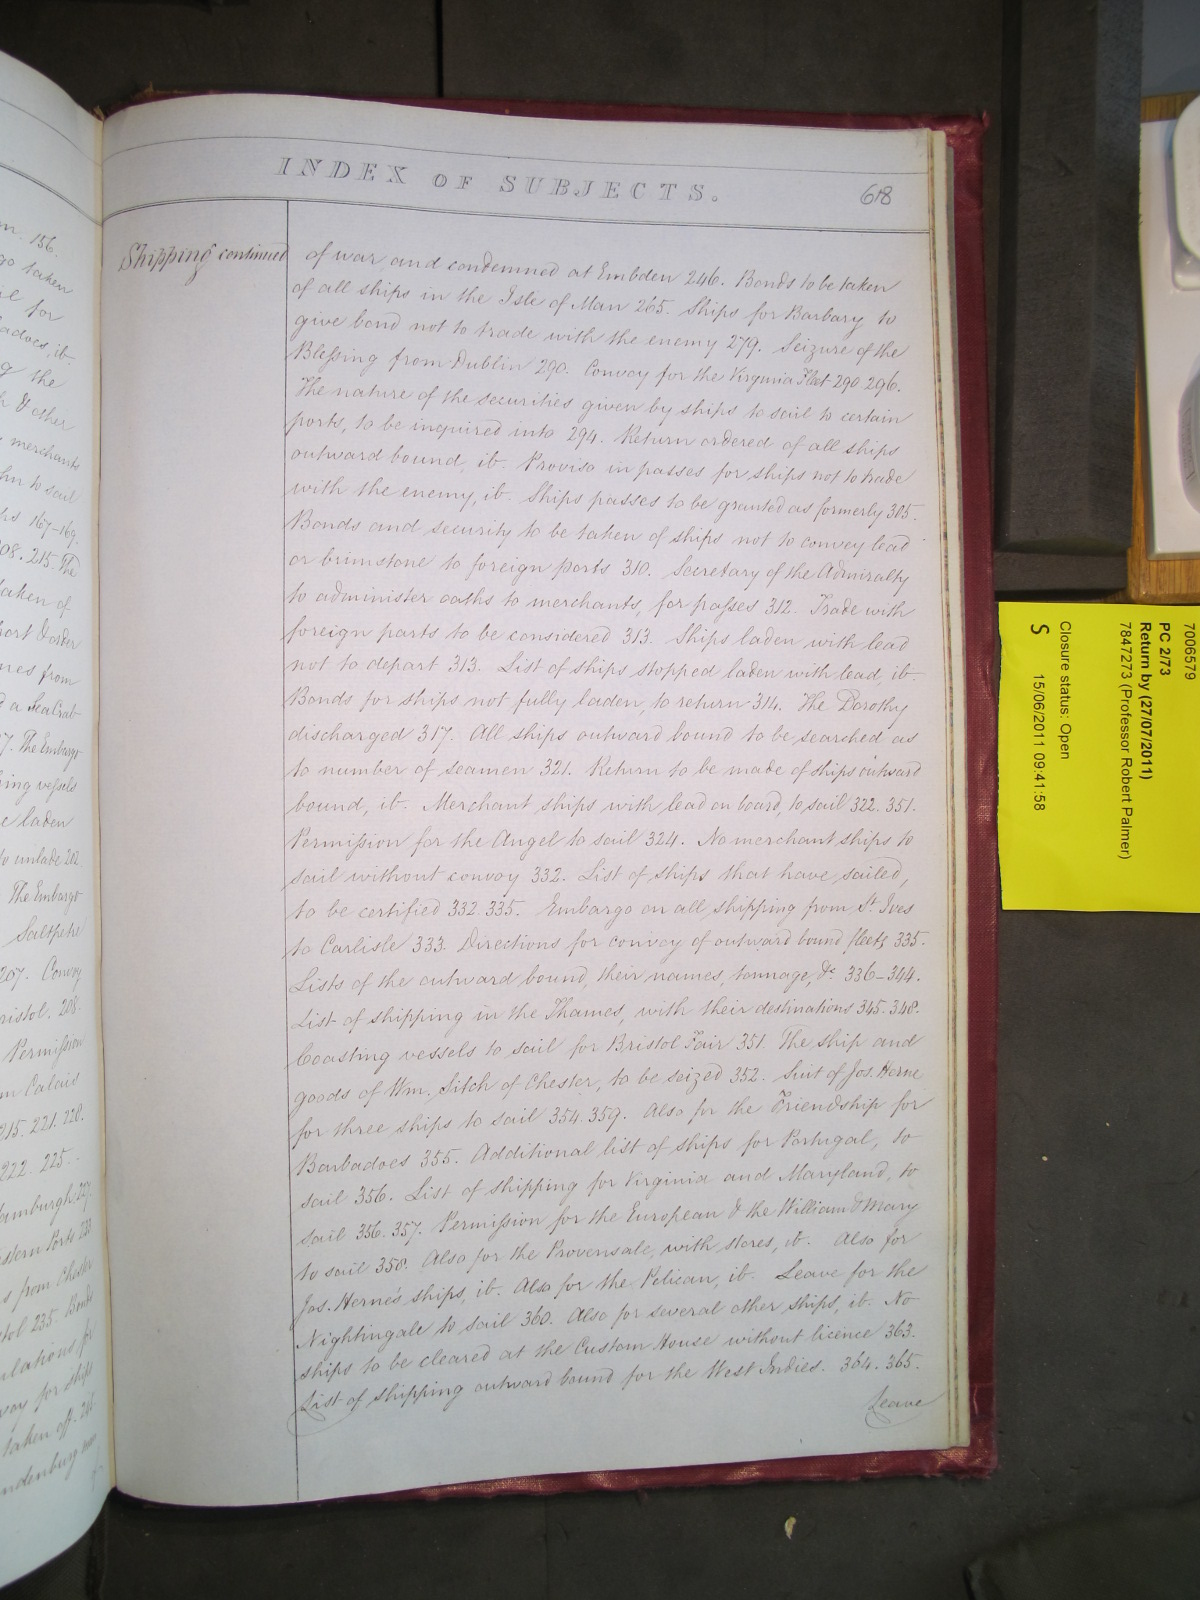 m. 156.
go taken
for
adoes, ib.
g the
& other
merchants
to sail
167-169.
208. 215. The
taken of
nes from
7. The Embargo
ing vessels
laden
to unlade 202
The Embargo
Saltpetre
207. Convoy
ristol. 208.
Permission
m Calais
215. 221. 220.
222. 225.
amburgh, 227.
stern Ports 233.
s from Chester
tol 235. Bonds
ulations for
voy for ships
taken off. 241
ndenburg
INDEX OF SUBJECTS.
618
Shipping continued
of war, and condemned at Embden 246. Bonds to be taken
of all ships in the Isle of Man 265. Ships for Barbary to
give bond not to trade with the enemy 279. Seizure of the
Blessing from Dublin 290. Convoy for the Virginia Fleet 290 296.
The nature of the securities given by ships to sail to certain
ports, to be inquired into 294. Return ordered of all ships
outward bound, ib. Proviso in passes for ships not to trade
with the enemy, ib. Ships passes to be granted as formerly 305.
Bonds and security to be taken of ships not to convey lead
or brimstone to foreign ports 310. Secretary of the Admiralty
to administer oaths to merchants, for passes 312. Trade with
foreign parts to be considered 313. Ships laden with lead
not to depart 313. List of ships stopped laden with lead, ib.
Bonds for ships not fully laden, to return 314. The Dorothy
discharged 317. All ships outward bound to be searched as
to number of seamen 321. Return to be made of ships outward
bound, ib. Merchant ships with lead on board, to sail 322. 351.
Permission for the Angel to sail 324. No merchant ships to
sail without convoy 332. List of ships that have sailed,
to be certified 332. 335. Embargo on all shipping from St. Ives
to Carlisle 333. Directions for convoy of outward bound fleets 335.
Lists of the outward bound, their names, tonnage, &c. 336-344.
List of shipping in the Thames, with their destinations 345-348.
Coasting vessels to sail for Bristol Fair 351. The ship and
goods of Wm. Sitch of Chester, to be seized 352. Suit of Jos. Herne
for three ships to sail 354. 359. Also for the Friendship for
Barbadoes 355. Additional list of ships for Portugal, to
sail 356. List of shipping for Virginia and Maryland, to
sail 356. 357. Permission for the European & the William & Mary
to sail 358. Also for the Provensale, with stores, ib. Also for
Jos. Herne's ships, ib. Also for the Pelican, ib. Leave for the
Nightingale to sail 360. Also for several other ships, ib. No
ships to be cleared at the Custom House without licence 363.
List of shipping outward bound for the West Indies. 364. 365.
Leave
7006579
PC 2/73
Return by (27/07/2011)
7847273 (Professor Robert Palmer)
Closure status: Open
S 15/06/2011 09:41:58